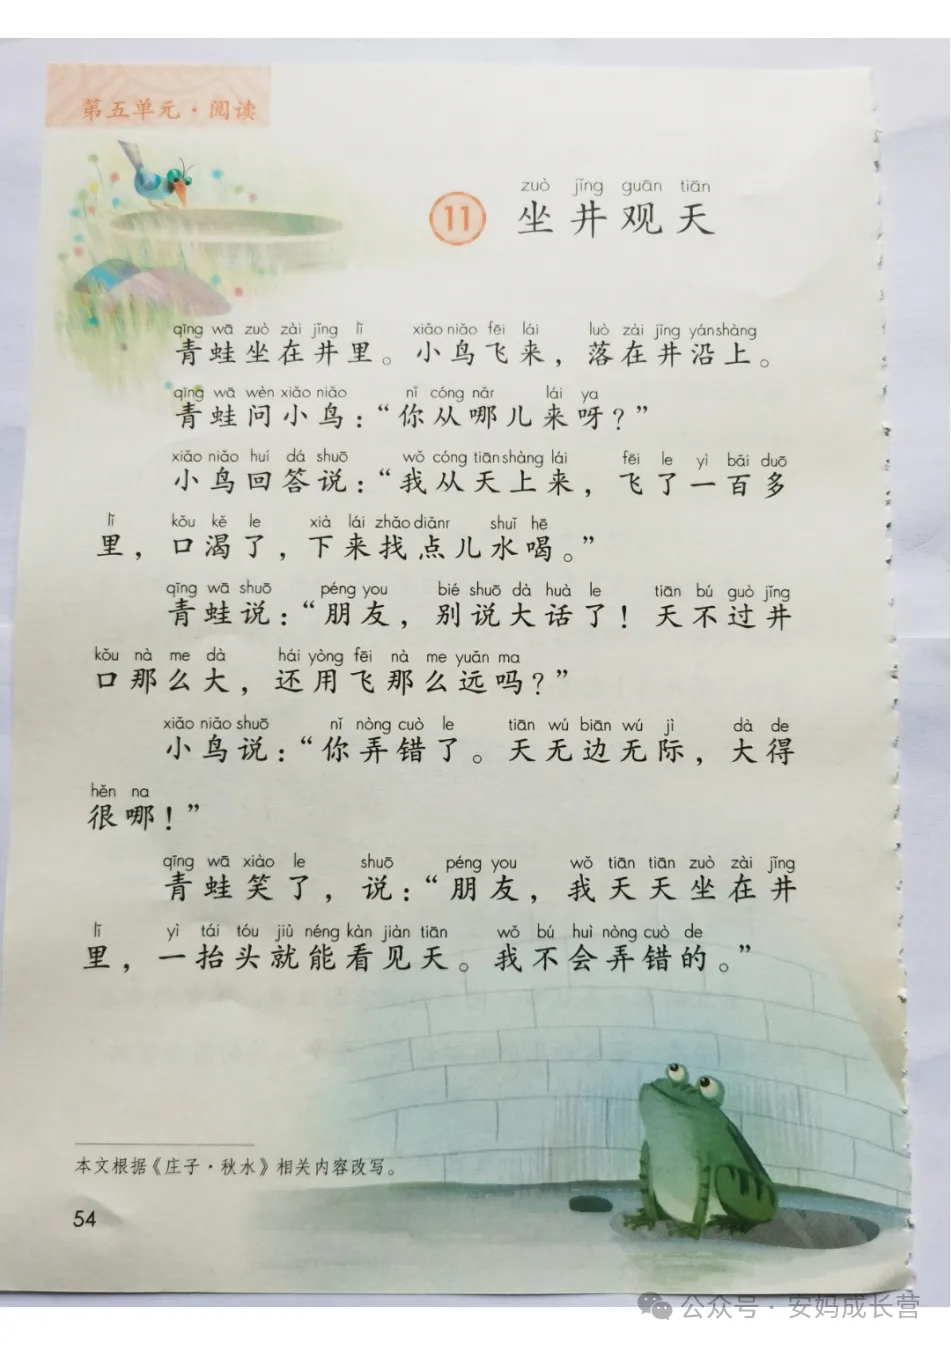 第五单元·阅读
zuò jǐng guān tiān
11 坐井观天
qīng wā zuò zài jǐng lǐ xiǎo niǎo fēi lái luò zài jǐng yán shàng
青蛙坐在井里。小鸟飞来，落在井沿上。
qīng wā wèn xiǎo niǎo nǐ cóng nǎr lái ya
青蛙问小鸟：“你从哪儿来呀？”
xiǎo niǎo huí dá shuō wǒ cóng tiān shàng lái fēi le yì bǎi duō
小鸟回答说：“我从天上来，飞了一百多
lǐ kǒu kě le xià lái zhǎo diǎnr shuǐ hē
里，口渴了，下来找点儿水喝。”
qīng wā shuō péng you bié shuō dà huà le tiān bú guò jǐng
青蛙说：“朋友，别说大话了！天不过井
kǒu nà me dà hái yòng fēi nà me yuǎn ma
口那么大，还用飞那么远吗？”
xiǎo niǎo shuō nǐ nòng cuò le tiān wú biān wú jì dà de
小鸟说：“你弄错了。天无边无际，大得
hěn na
很哪！”
qīng wā xiào le shuō péng you wǒ tiān tiān zuò zài jǐng
青蛙笑了，说：“朋友，我天天坐在井
lǐ yì tái tóu jiù néng kàn jiàn tiān wǒ bú huì nòng cuò de
里，一抬头就能看见天。我不会弄错的。”
本文根据《庄子·秋水》相关内容改写。
54
公众号·安妈成长营